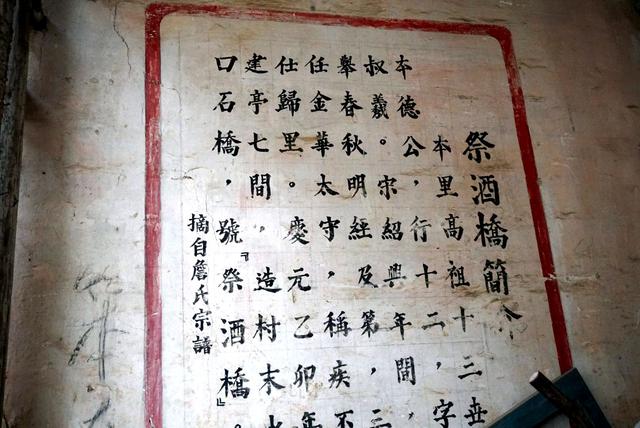 祭酒橋簡介
本里高祖十三世
本德公，行十二，字
叔羲。宋紹興年間，
舉春秋明經及第，三
任金華太守，稱疾不
仕歸里。慶元乙卯年
建亭七間，造村末水
口石橋，號『祭酒橋』。
摘自詹氏宗譜